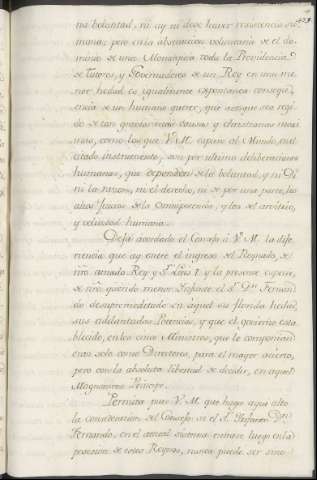 na bolantad, ni ay ni debe haver resistencia hu
mana; pero en la abdicacion voluntaria de el do
minio de una Monarquia toda la Providencia
de tutores, y Governadores de un Rey en una me
nor hedad es igualmente espontanea conseq
encia de un humano querer, que aunque sea regi
do de tan gravissimas causas y christianas maxi
mas, como las que V. M. expone al Mundo, en el
citado instrumento, son por ultimo deliberaciones
humanas, que dependen de la bolantad, y ni D
ni la razon, ni el derecho, ni
altos Juicios de la Omnipotencia, y los del arvitrio,
y velocidad humana.
Dejo acordado el Consejo á V. M. la dife
rencia que ay entre el ingreso al Reynado, de
nro amado Rey y Sr Luis I. y la presente
de nro querido menor Infante el Sr Dn Fernan
do
sus adelantadas Potencias, y que el govierno esta
blecido, en los cinco Ministros, que le componian
era solo como Directores, para el mayor acierto,
pero con la absoluta libertad de decidir, en aquel
Magnanimo Principe.
Permita pues V. M. que haga aqui alto
la consideracion del Consejo: si el Sr Infante Dn
Fernando, en el actual sistema entrase luego en la
posesion de estos Reynos, nunca puede ser sino